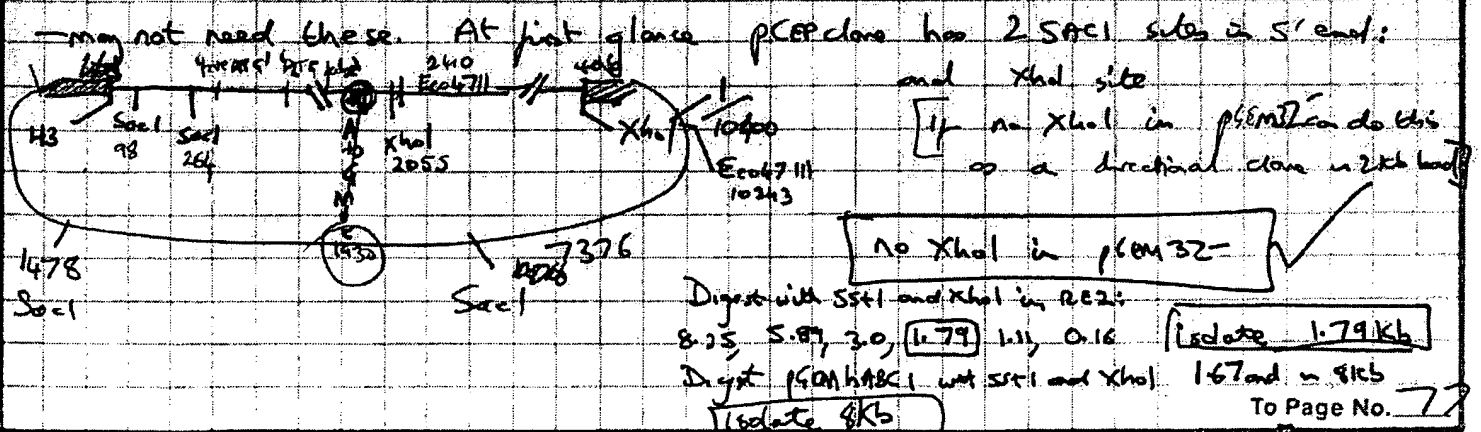 – may not need these. At first glance pCEP clone has 2 SAC1 sites in 5' end:
and Xho1 site
2410
Eco47111
H3
Sac1
98
Sac1
264
Xho1
2055
Xho1
10400
Eco47111
10243
If no Xho1 in pGEM3Z can do this
as a directional clone
no Xho1 in pGEM3Z –
1930
1478
Sac1
7376
Sac1
Digest with SSt1 and Xho1 in RE2:
8.25, 5.89, 3.0, 1.79, 1.11, 0.16
isolate 1.79 Kb
Digest hABC1 with SSt1 and Xho1 1.67 and 8Kb
isolate 8Kb
To Page No. 77